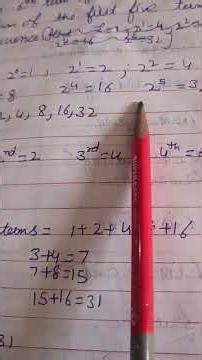 of the first five term
2⁴=16 2⁵=32
2⁰=1, 2¹=2; 2²=4
=8 2⁴=16 2⁵=3
2, 4, 8, 16, 32
nd=2 3rd=4 4th=
terms = 1+2+4 +16
3+4=7
7+8=15
15+16=31